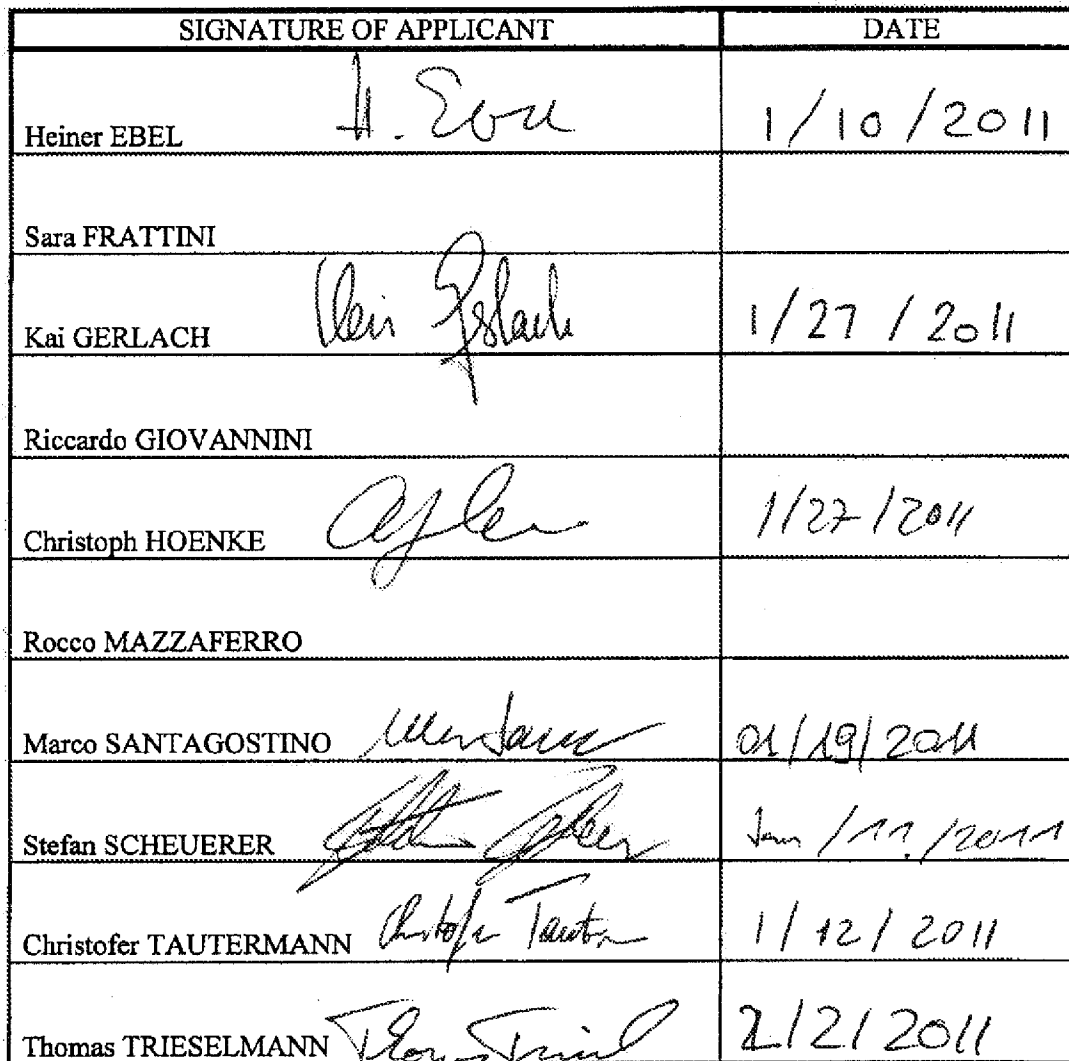 SIGNATURE OF APPLICANT DATE
Heiner EBEL H. Ebel 1/10/2011
Sara FRATTINI
Kai GERLACH Kai Gerlach 1/27/2011
Riccardo GIOVANNINI
Christoph HOENKE 1/27/2011
Rocco MAZZAFERRO
Marco SANTAGOSTINO 01/19/2011
Stefan SCHEUERER Jan/11./2011
Christofer TAUTERMANN 1/12/2011
Thomas TRIESELMANN 2/2/2011